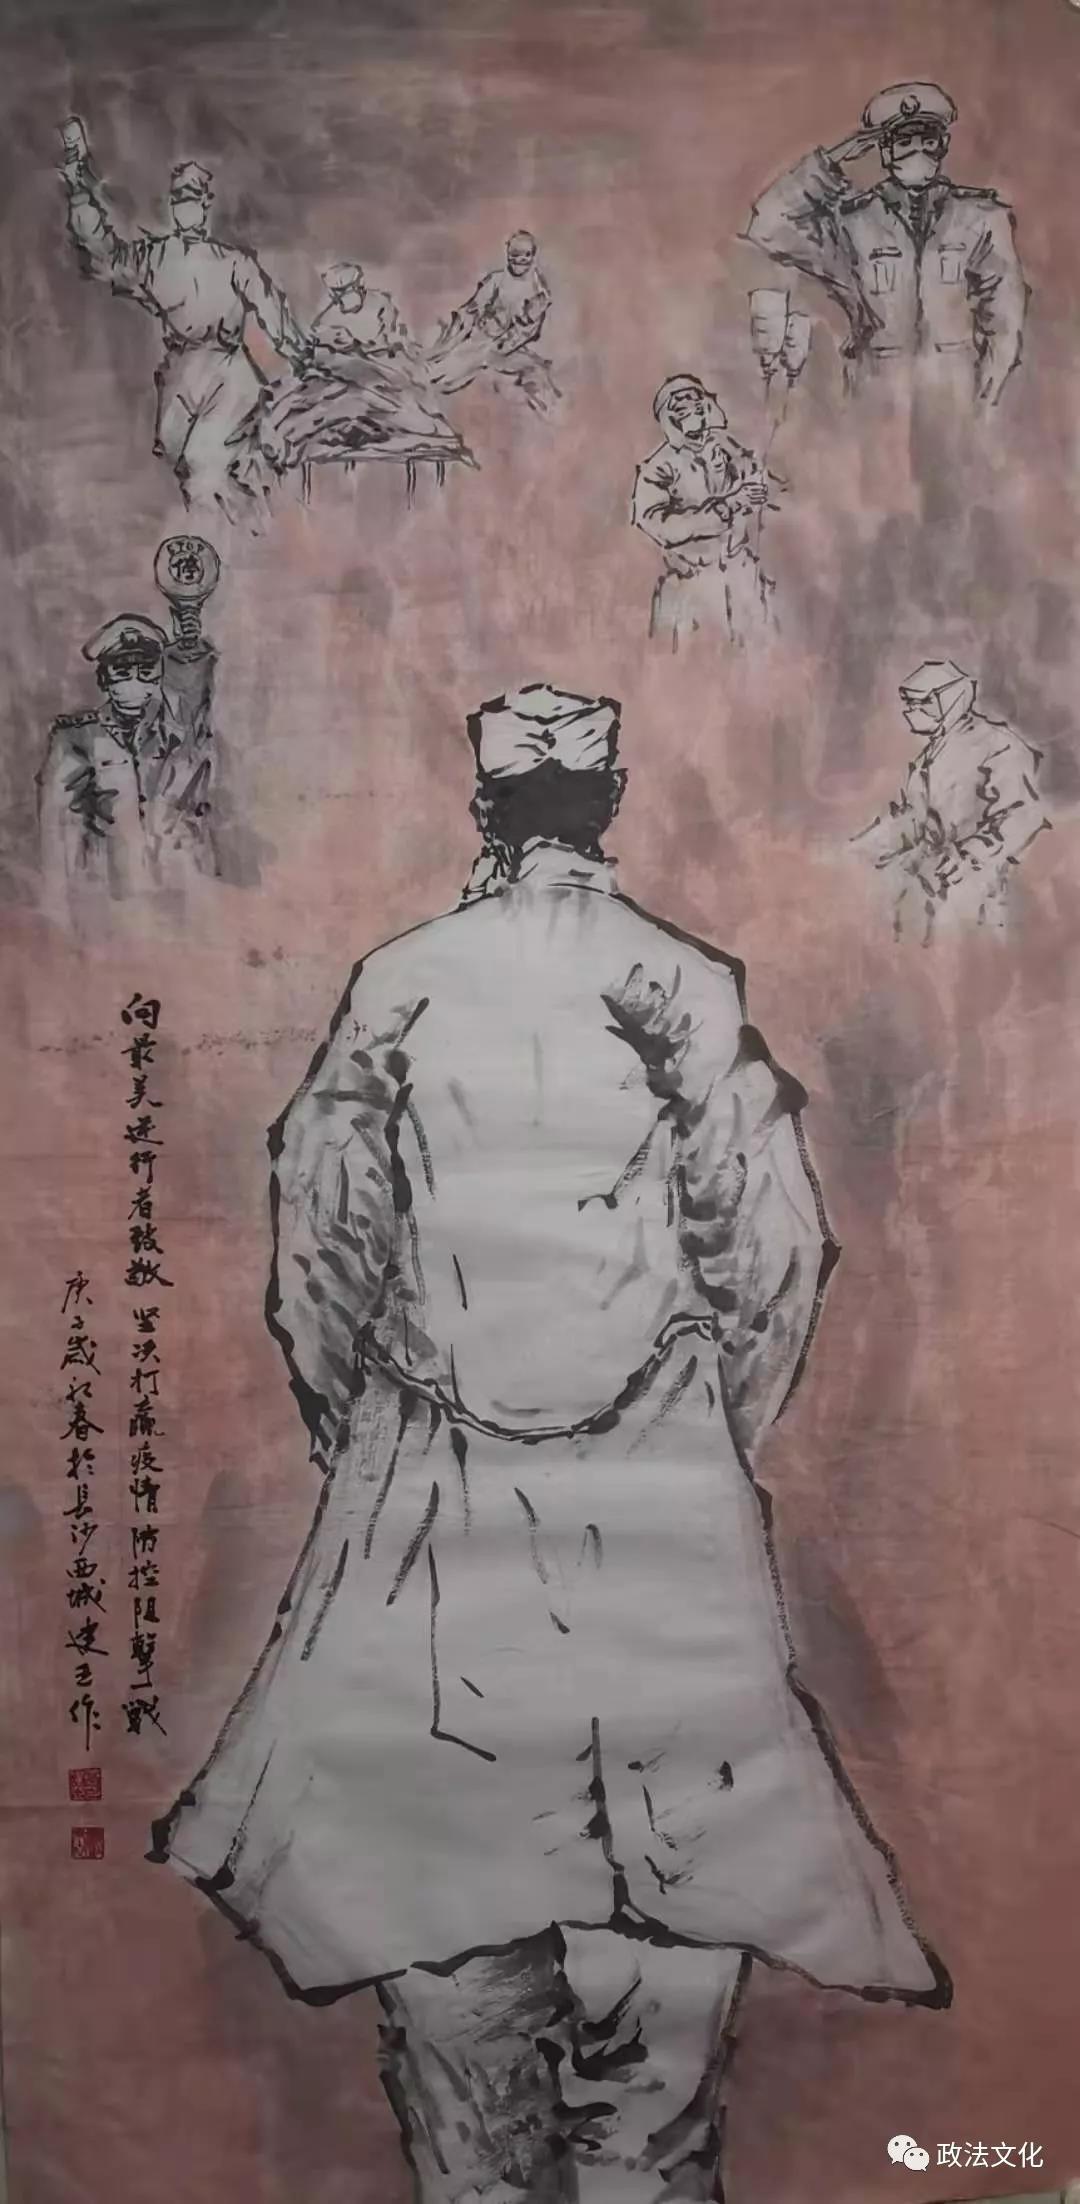 STOP
停
向最美逆行者致敬 坚决打赢疫情防控阻擊戰
庚子歲初春於長沙西城建玉作
政法文化